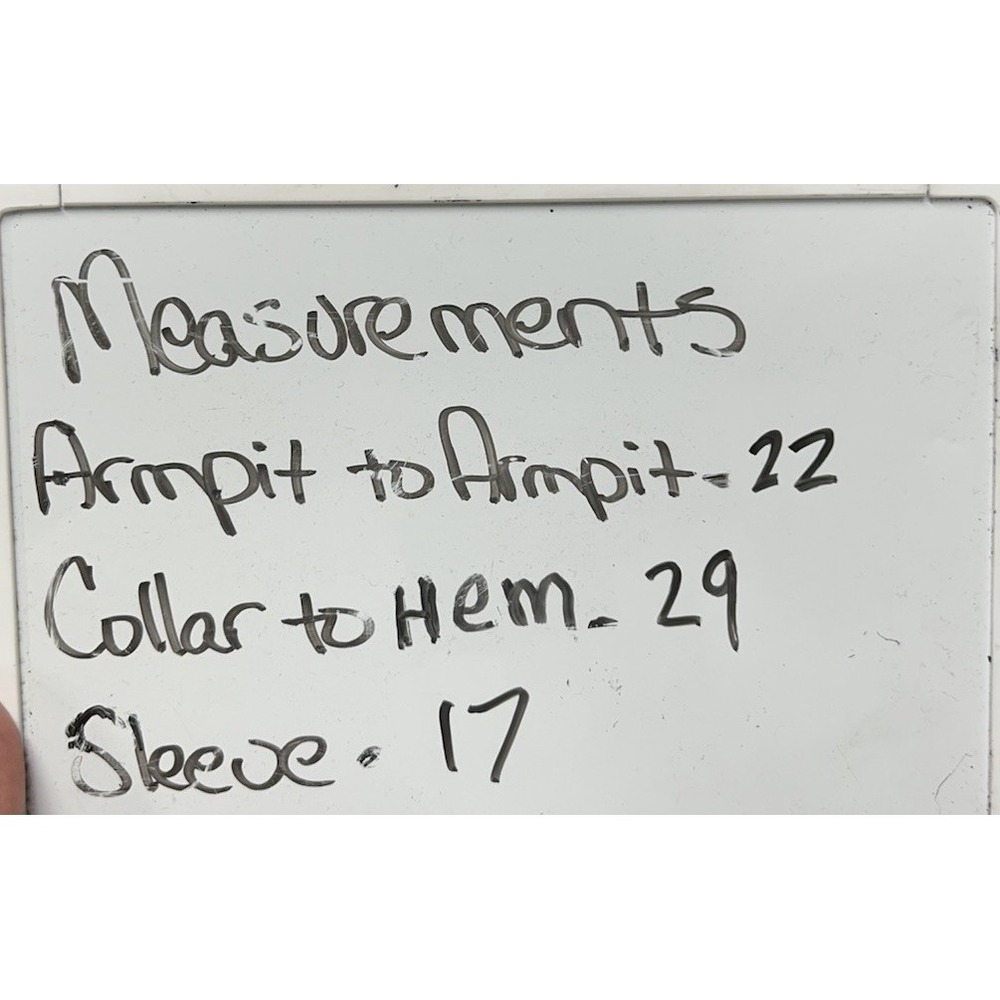 Measurements
Armpit to Armpit - 22
Collar to Hem - 29
Sleeve - 17